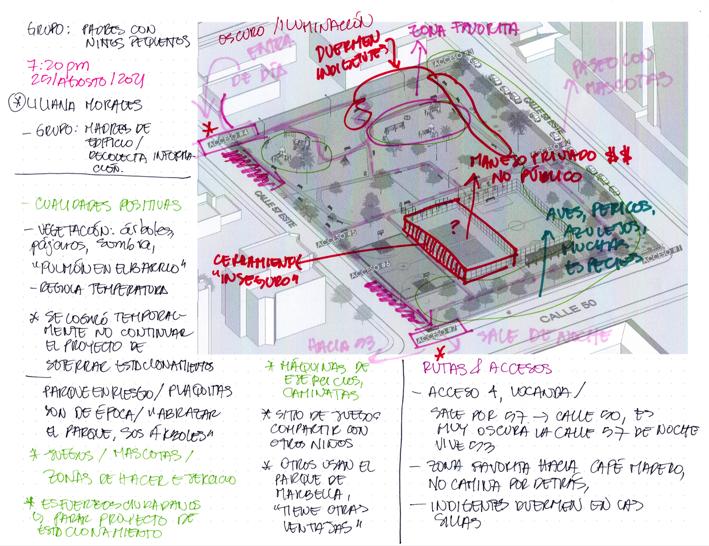 GRUPO: PADRES CON
NIÑOS PEQUEÑOS
7:20 pm
25/AGOSTO/2021
* LILIANA MORALES
- GRUPO: MADRES DE
EDIFICIO/
RECOLECTA INFORMA-
CIÓN.
- CUALIDADES POSITIVAS
- VEGETACIÓN: árboles,
pájaros, sombra,
"PULMÓN EN EL BARRIO"
- REGULA TEMPERATURA
* SE LOGRÓ TEMPORAL-
MENTE NO CONTINUAR
EL PROYECTO DE
SOTERRAR ESTACIONAMIENTOS
PARQUE EN RIESGO/PLAQUITAS
SON DE ÉPOCA/"ABRAZAR
EL PARQUE, SOS ÁRBOLES"
* JUEGOS / MASCOTAS /
ZONAS DE HACER EJERCICIO
* ESFUERZOS CIUDADANOS
PARAR PROYECTO DE
ESTACIONAMIENTO
OSCURO/ILUMINACIÓN
DUERMEN
INDIGENTES
ZONA FAVORITA
ENTRA
DE DÍA
PASEO CON
MASCOTAS
ACCESO #4
CALLE 51 ESTE
CALLE 57 ESTE
MANEJO PRIVADO **
NO PÚBLICO
?
ACCESO #5
ACCESO #6
CERRAMIENTO
"INSEGURO"
AVES, PERICOS,
AZULEJOS,
MUCHAS
ESPECIES
CALLE 50
ACCESO #7
HACIA 53
SALE DE NOCHE
* MÁQUINAS DE
EJERCICIOS,
CAMINATAS
* SITO DE JUEGOS
COMPARTIR CON
OTROS NIÑOS
* OTROS USAN EL
PARQUE DE
MARBELLA,
"TIENE OTRAS
VENTAJAS"
RUTAS & ACCESOS
- ACCESO 4, VOCANDA/
SALE POR 57 → CALLE 50, ES
MUY OSCURA LA CALLE 57 DE NOCHE
VIVE 53
- ZONA FAVORITA HACIA CAFÉ MADERO,
NO CAMINA POR DETRÁS,
- INDIGENTES DUERMEN EN LAS
SILLAS